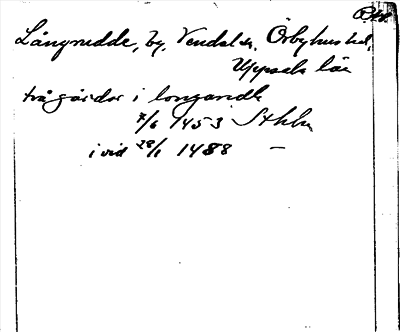 P.br.
Långrudde, by, Vendels sn, Örbyhus hd,
Uppsala län
två gårdar i longarudh
7/6 1453 Sthlm
i vid 28/1 1488 —